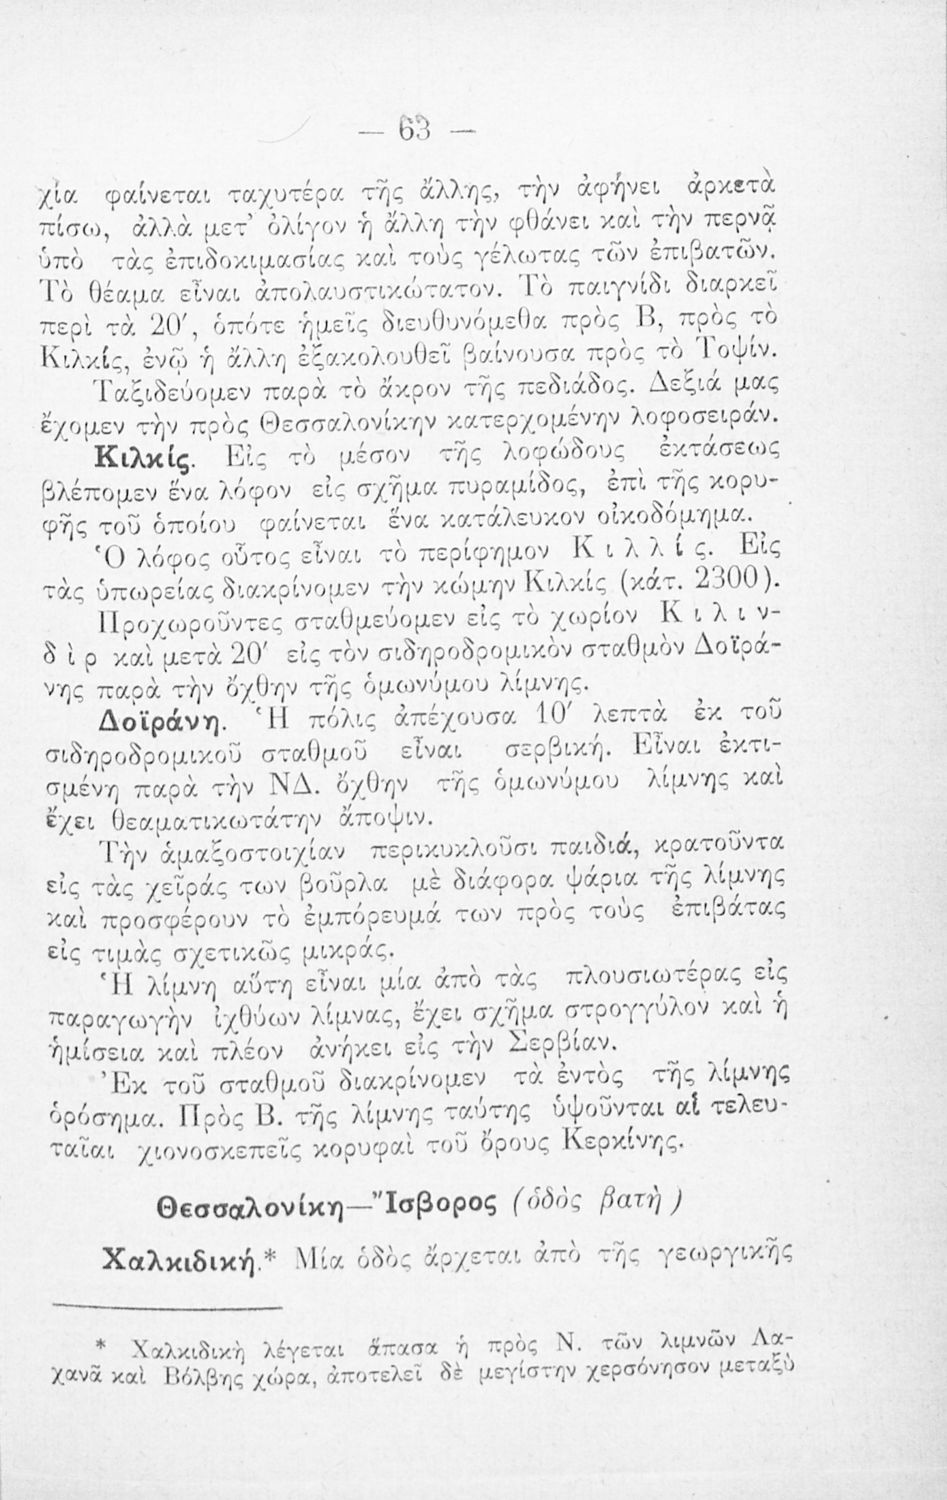 — 63 —
χία φαίνεται ταχυτέρα τῆς ἄλλης, τὴν ἀφήνει ἀρκετὰ
πίσω, ἀλλὰ μετ’ ὀλίγον ἡ ἄλλη τὴν φθάνει καὶ τὴν περνᾷ
ὑπὸ τὰς ἐπιδοκιμασίας καὶ τοὺς γέλωτας τῶν ἐπιβατῶν.
Τὸ θέαμα εἶναι ἀπολαυστικώτατον. Τὸ παιγνίδι διαρκεῖ
περὶ τὰ 20′, ὁπότε ἡμεῖς διευθυνόμεθα πρὸς Β, πρὸς τὸ
Κιλκίς, ἐνῷ ἡ ἄλλη ἐξακολουθεῖ βαίνουσα πρὸς τὸ Τοψίν.
Ταξιδεύομεν παρὰ τὸ ἄκρον τῆς πεδιάδος. Δεξιά μας
ἔχομεν τὴν πρὸς Θεσσαλονίκην κατερχομένην λοφοσειράν.
Κιλκίς. Εἰς τὸ μέσον τῆς λοφώδους ἐκτάσεως
βλέπομεν ἕνα λόφον εἰς σχῆμα πυραμίδος, ἐπὶ τῆς κορυ-
φῆς τοῦ ὁποίου φαίνεται ἕνα κατάλευκον οἰκοδόμημα.
Ὁ λόφος οὗτος εἶναι τὸ περίφημον Κ ι λ λ ί ς. Εἰς
τὰς ὑπωρείας διακρίνομεν τὴν κώμην Κιλκίς (κάτ. 2300).
Προχωροῦντες σταθμεύομεν εἰς τὸ χωρίον Κ ι λ ι ν-
δ ὶ ρ καὶ μετὰ 20′ εἰς τὸν σιδηροδρομικὸν σταθμὸν Δοϊρά-
νης παρὰ τὴν ὄχθην τῆς ὁμωνύμου λίμνης.
Δοϊράνη. Ἡ πόλις ἀπέχουσα 10′ λεπτὰ ἐκ τοῦ
σιδηροδρομικοῦ σταθμοῦ εἶναι σερβική. Εἶναι ἐκτι-
σμένη παρὰ τὴν ΝΔ. ὄχθην τῆς ὁμωνύμου λίμνης καὶ
ἔχει θεαματικωτάτην ἄποψιν.
Τὴν ἁμαξοστοιχίαν περικυκλοῦσι παιδιά, κρατοῦντα
εἰς τὰς χεῖράς των βοῦρλα μὲ διάφορα ψάρια τῆς λίμνης
καὶ προσφέρουν τὸ ἐμπόρευμά των πρὸς τοὺς ἐπιβάτας
εἰς τιμὰς σχετικῶς μικράς.
Ἡ λίμνη αὕτη εἶναι μία ἀπὸ τὰς πλουσιωτέρας εἰς
παραγωγὴν ἰχθύων λίμνας, ἔχει σχῆμα στρογγύλον καὶ ἡ
ἡμίσεια καὶ πλέον ἀνήκει εἰς τὴν Σερβίαν.
Ἐκ τοῦ σταθμοῦ διακρίνομεν τὰ ἐντὸς τῆς λίμνης
ὁρόσημα. Πρὸς Β. τῆς λίμνης ταύτης ὑψοῦνται αἱ τελευ-
ταῖαι χιονοσκεπεῖς κορυφαὶ τοῦ ὄρους Κερκίνης.
Θεσσαλονίκη—Ἴσβορος (ὁδὸς βατὴ)
Χαλκιδική.* Μία ὁδὸς ἄρχεται ἀπὸ τῆς γεωργικῆς
* Χαλκιδικὴ λέγεται ἅπασα ἡ πρὸς Ν. τῶν λιμνῶν Λα-
χανᾶ καὶ Βόλβης χώρα, ἀποτελεῖ δὲ μεγίστην χερσόνησον μεταξὺ